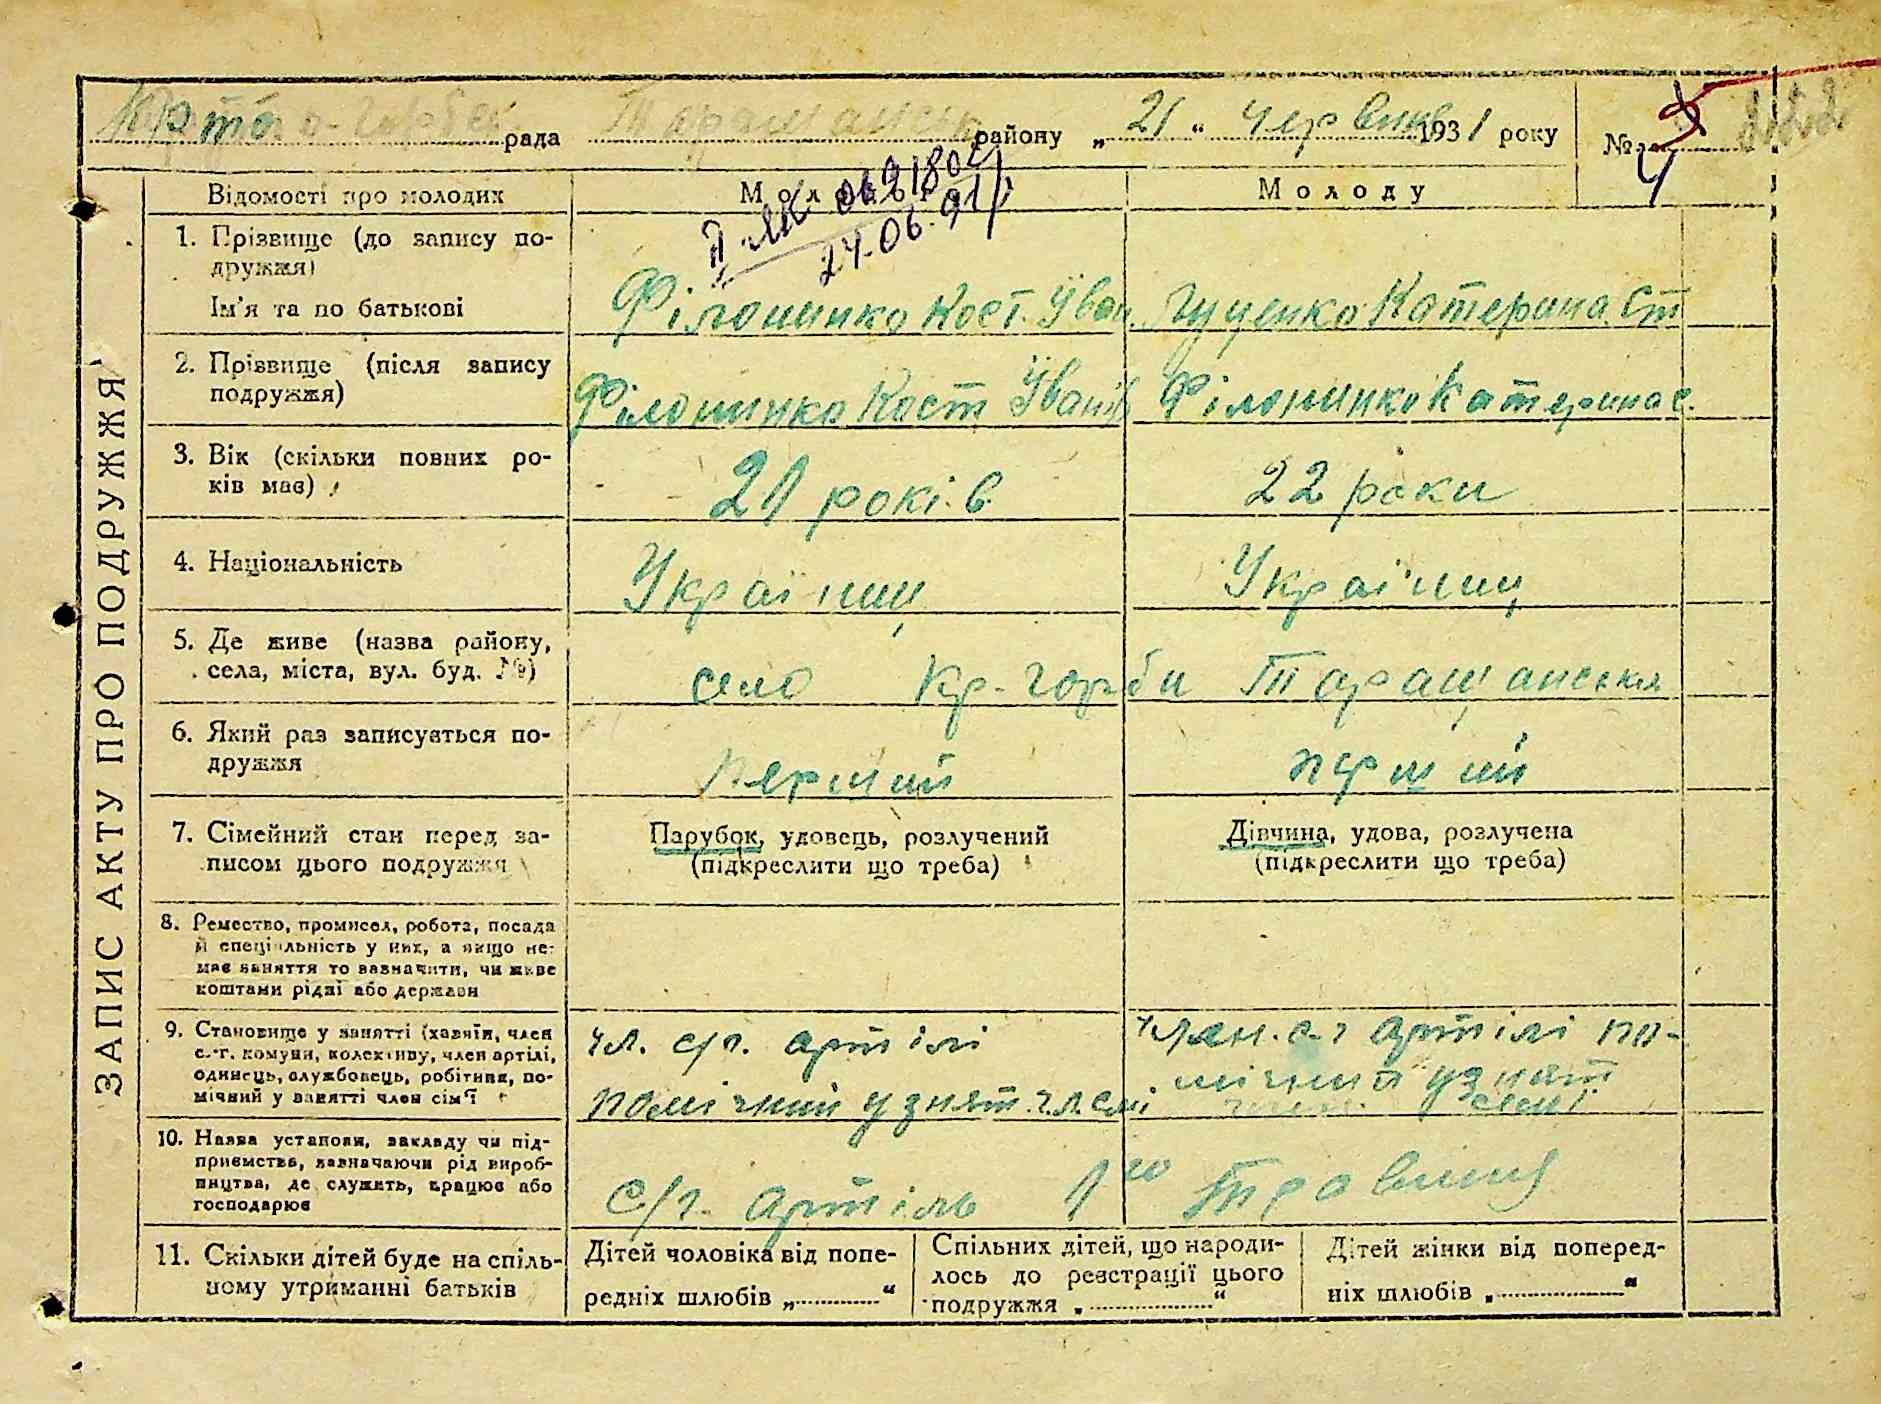 рада Таращансько району „21“ червня 1931 року №
ЗАПИС АКТУ ПРО ПОДРУЖЖЯ
Відомості про молодих
Молоду
062180
24.06.91
1. Прізвище (до запису по-
дружжя)
Ім'я та по батькові
Філонинко Кост. Іван.
Гуценко Катерина Ст
2. Прізвище (після запису
подружжя)
Філонинко Кост Іванів
Філонинко Катерина С.
3. Вік (скільки повних ро-
ків має)
21 років
22 роки
4. Національність
Українец
Українец
5. Де живе (назва району,
села, міста, вул. буд. №)
село Кр-горби Таращанськ
6. Який раз записується по-
дружжя
перший
перший
7. Сімейний стан перед за-
писом цього подружжя
Парубок, удовець, розлучений
(підкреслити що треба)
Дівчина, удова, розлучена
(підкреслити що треба)
8. Ремество, промисел, робота, посада
й спеціальність у них, а якщо не-
має заняття то зазначити, чи живе
коштами рідні або держави
9. Становище у занятті (хазяїн, член
с.-г. комуни, колективу, член артілі,
одинець, службовець, робітник, по-
мічний у занятті член сім'ї
чл. с/г. артілі
помічний у знят. чл. сім
член. с-г артілі по-
мічний у знят
сімі
10. Назва установи, закладу чи під-
приємства, зазначаючи рід вироб-
ництва, де служить, працює або
господарює
с/г. артіль 1го Травння
11. Скільки дітей буде на спіль-
ному утриманні батьків
Дітей чоловіка від попе-
редніх шлюбів „ “
Спільних дітей, що народи-
лось до реєстрації цього
подружжя „ “
Дітей жінки від поперед-
ніх шлюбів „ “